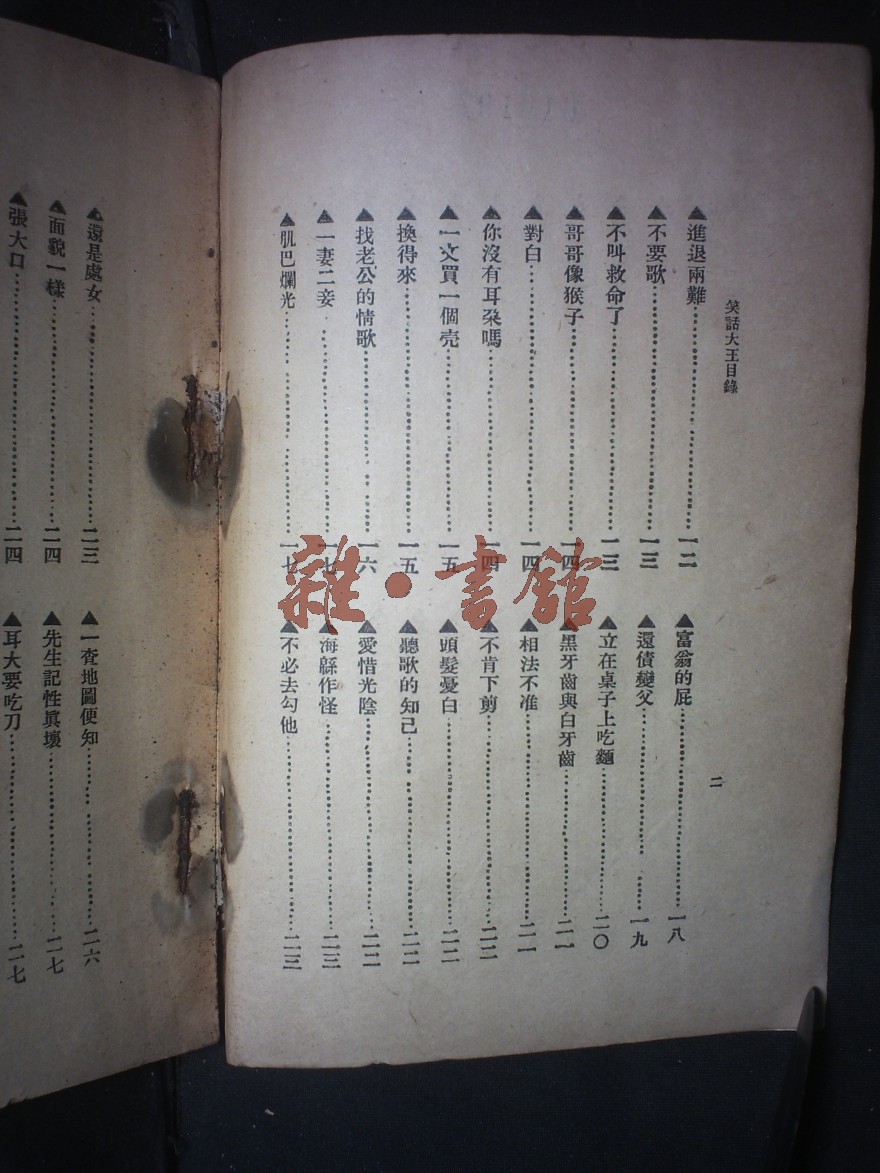 笑話大王目錄
二
▲進退兩難………一二
▲不要歌………一三
▲不叫救命了………一三
▲哥哥像猴子………一四
▲對白………一四
▲你沒有耳朶嗎………一四
▲一文買一個壳………一五
▲換得來………一五
▲找老公的情歌………一六
▲一妻二妾………一七
▲肌巴爛光………一七
▲富翁的屁………一八
▲還債變父………一九
▲立在桌子上吃麵………二〇
▲黑牙齒與白牙齒………二一
▲相法不准………二一
▲不肯下剪………二二
▲頭髮憂白………二二
▲聽歌的知己………二二
▲愛惜光陰………二二
▲海繇作怪………二三
▲不必去勾他………二三
▲還是處女………二三
▲面貌一樣………二四
▲張大口………二四
▲一査地圖便知………二六
▲先生記性眞壞………二七
▲耳大要吃刀………二七
雜·書館